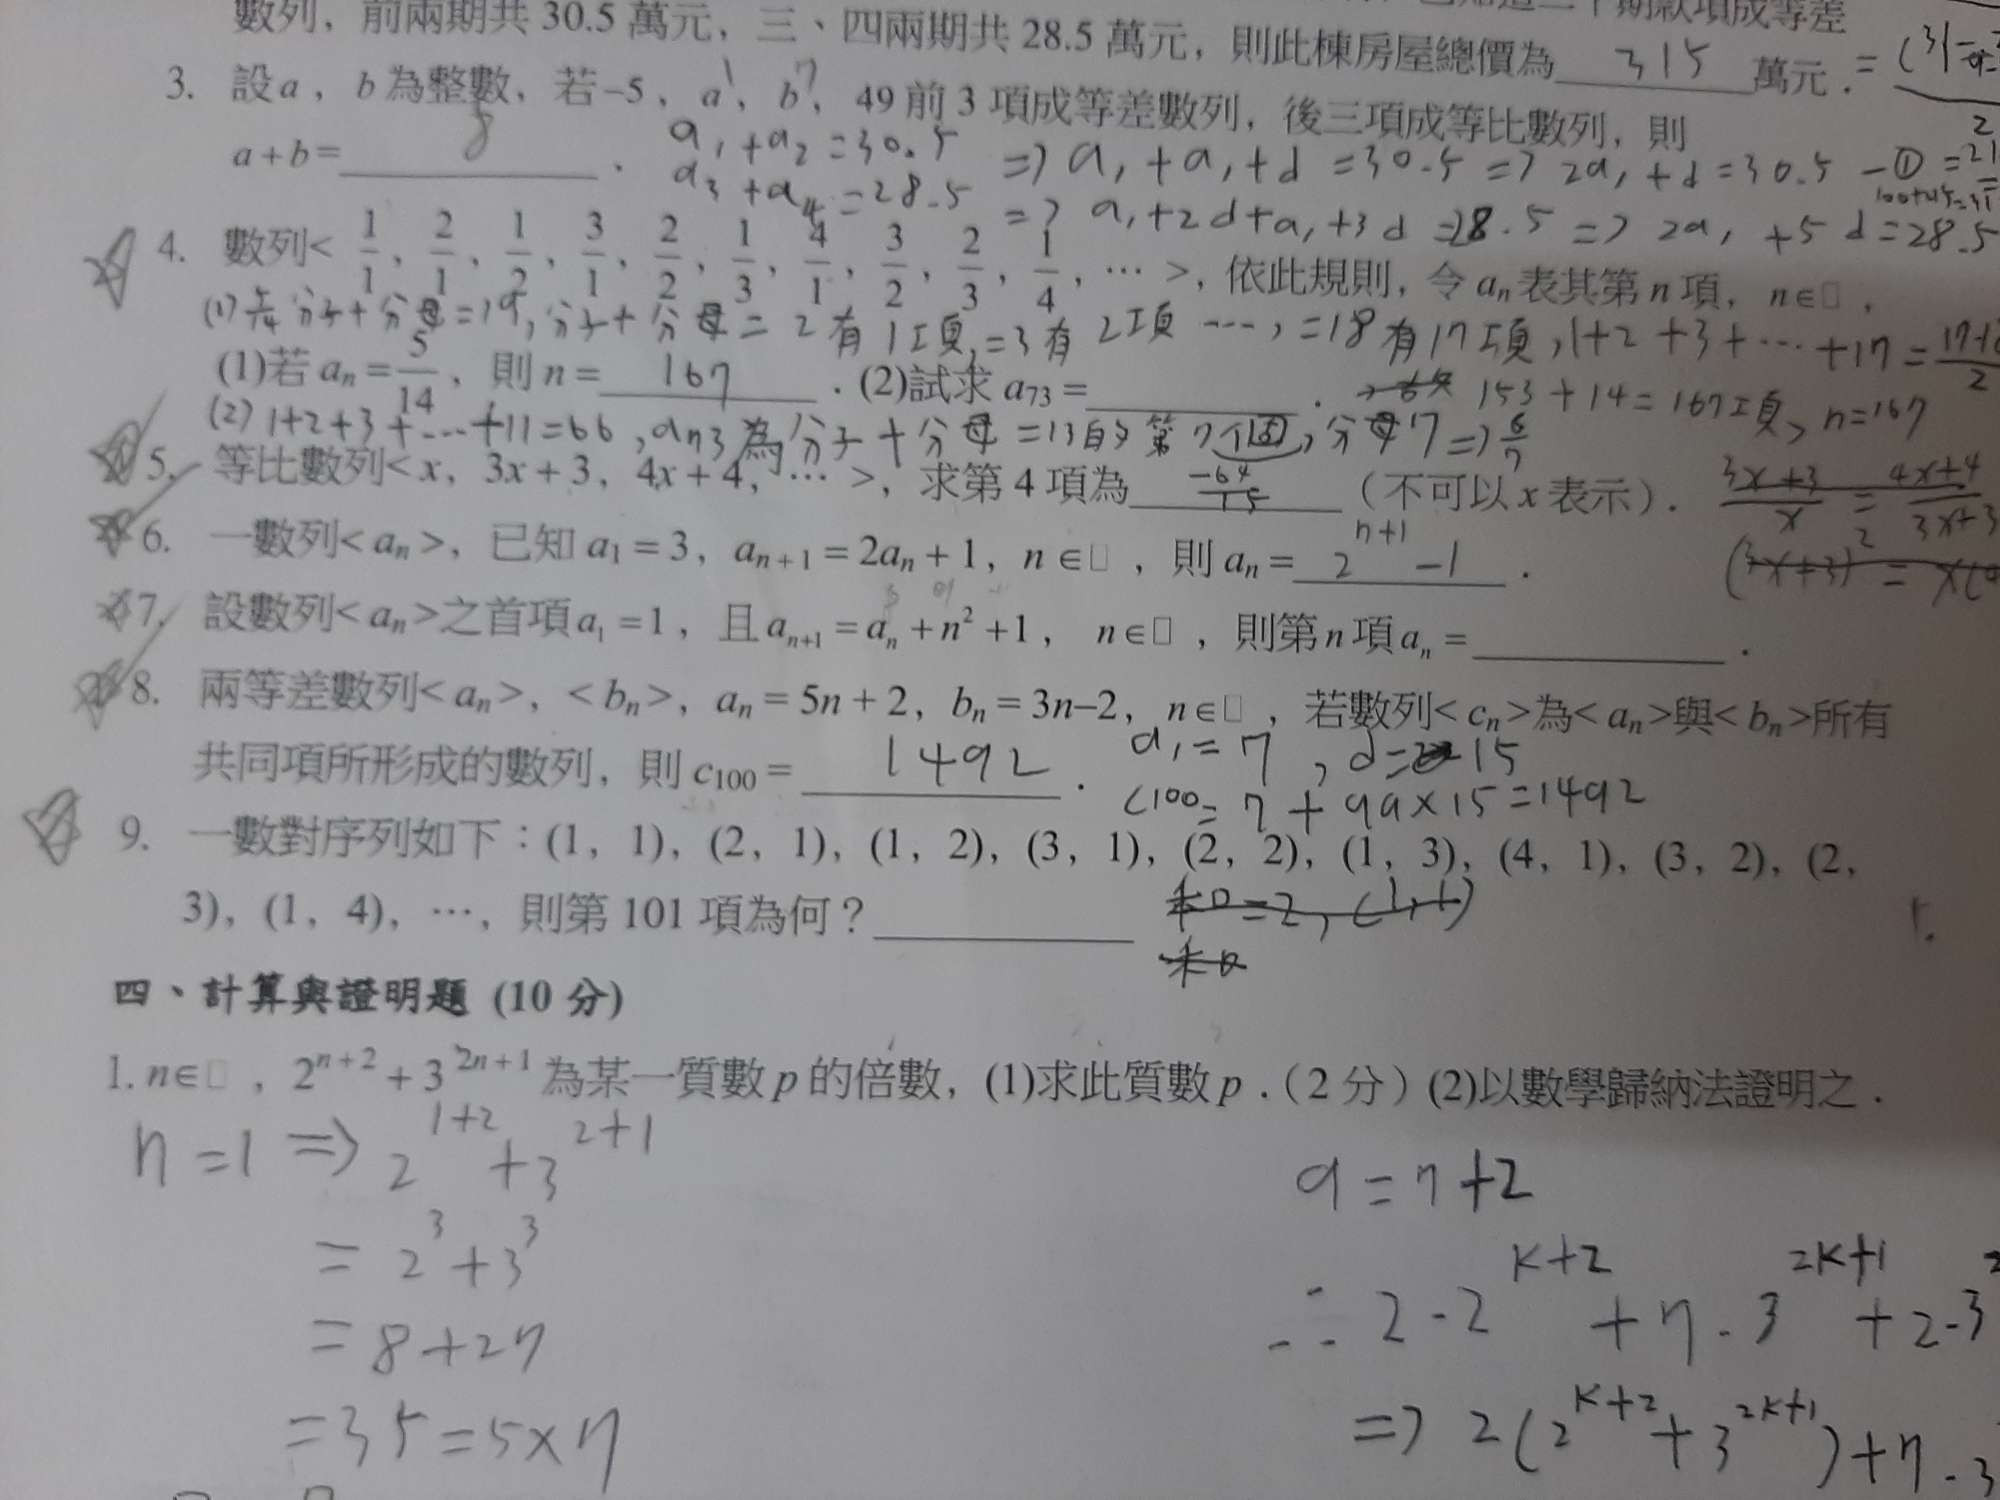 數列，前兩期共 30.5 萬元，三、四兩期共 28.5 萬元，則此棟房屋總價為 315 萬元．
3. 設 a，b 為整數，若 –5，a，b，49 前 3 項成等差數列，後三項成等比數列，則
1 7
a + b = 8 ．
a₁+a₂=30.5 => a₁+a₁+d=30.5 => 2a₁+d=30.5 -①
a₃+a₄=28.5 => a₁+2d+a₁+3d=28.5 => 2a₁+5d=28.5
4. 數列< 1/1，2/1，1/2，3/1，2/2，1/3，4/1，3/2，2/3，1/4，⋯ >，依此規則，令 aₙ 表其第 n 項，n∈□，
(1) 5/14 分子+分母=19, 分子+分母=2有1項,=3有2項 ⋯, =18有17項, 1+2+3+⋯+17=
(1)若 aₙ = 5/14，則 n = 167 ．(2)試求 a₇₃ = ．
153+14=167項, n=167
(2) 1+2+3+⋯+11=66, a₇₃為分子+分母=13的第7個, 分母7 => 6/7
5. 等比數列< x，3x + 3，4x + 4，⋯ >，求第 4 項為 -64/15 （不可以 x 表示）．
3x+3/x = 4x+4/3x+3
6. 一數列< aₙ >，已知 a₁ = 3，aₙ₊₁ = 2aₙ + 1，n ∈□，則 aₙ = 2ⁿ⁺¹-1 ．
7. 設數列< aₙ >之首項 a₁ = 1，且 aₙ₊₁ = aₙ + n² + 1， n∈□，則第 n 項 aₙ = ．
8. 兩等差數列< aₙ >，< bₙ >，aₙ = 5n + 2，bₙ = 3n–2，n∈□，若數列< cₙ >為< aₙ >與< bₙ >所有
共同項所形成的數列，則 c₁₀₀ = 1492 ．
a₁=7, d=15
C100=7+99×15=1492
9. 一數對序列如下：(1，1)，(2，1)，(1，2)，(3，1)，(2，2)，(1，3)，(4，1)，(3，2)，(2，
3)，(1，4)，⋯，則第 101 項為何？
和=2, (1,1)
和
四、計算與證明題 (10 分)
1. n∈□，2ⁿ⁺² + 3²ⁿ⁺¹ 為某一質數 p 的倍數，(1)求此質數 p．（2 分）(2)以數學歸納法證明之．
n=1 => 2¹⁺²+3²⁺¹
=2³+3³
=8+27
=35=5×7
9=7+2
∴2·2ᵏ⁺²+7·3²ᵏ⁺¹+2·3
=> 2(2ᵏ⁺²+3²ᵏ⁺¹)+7·3